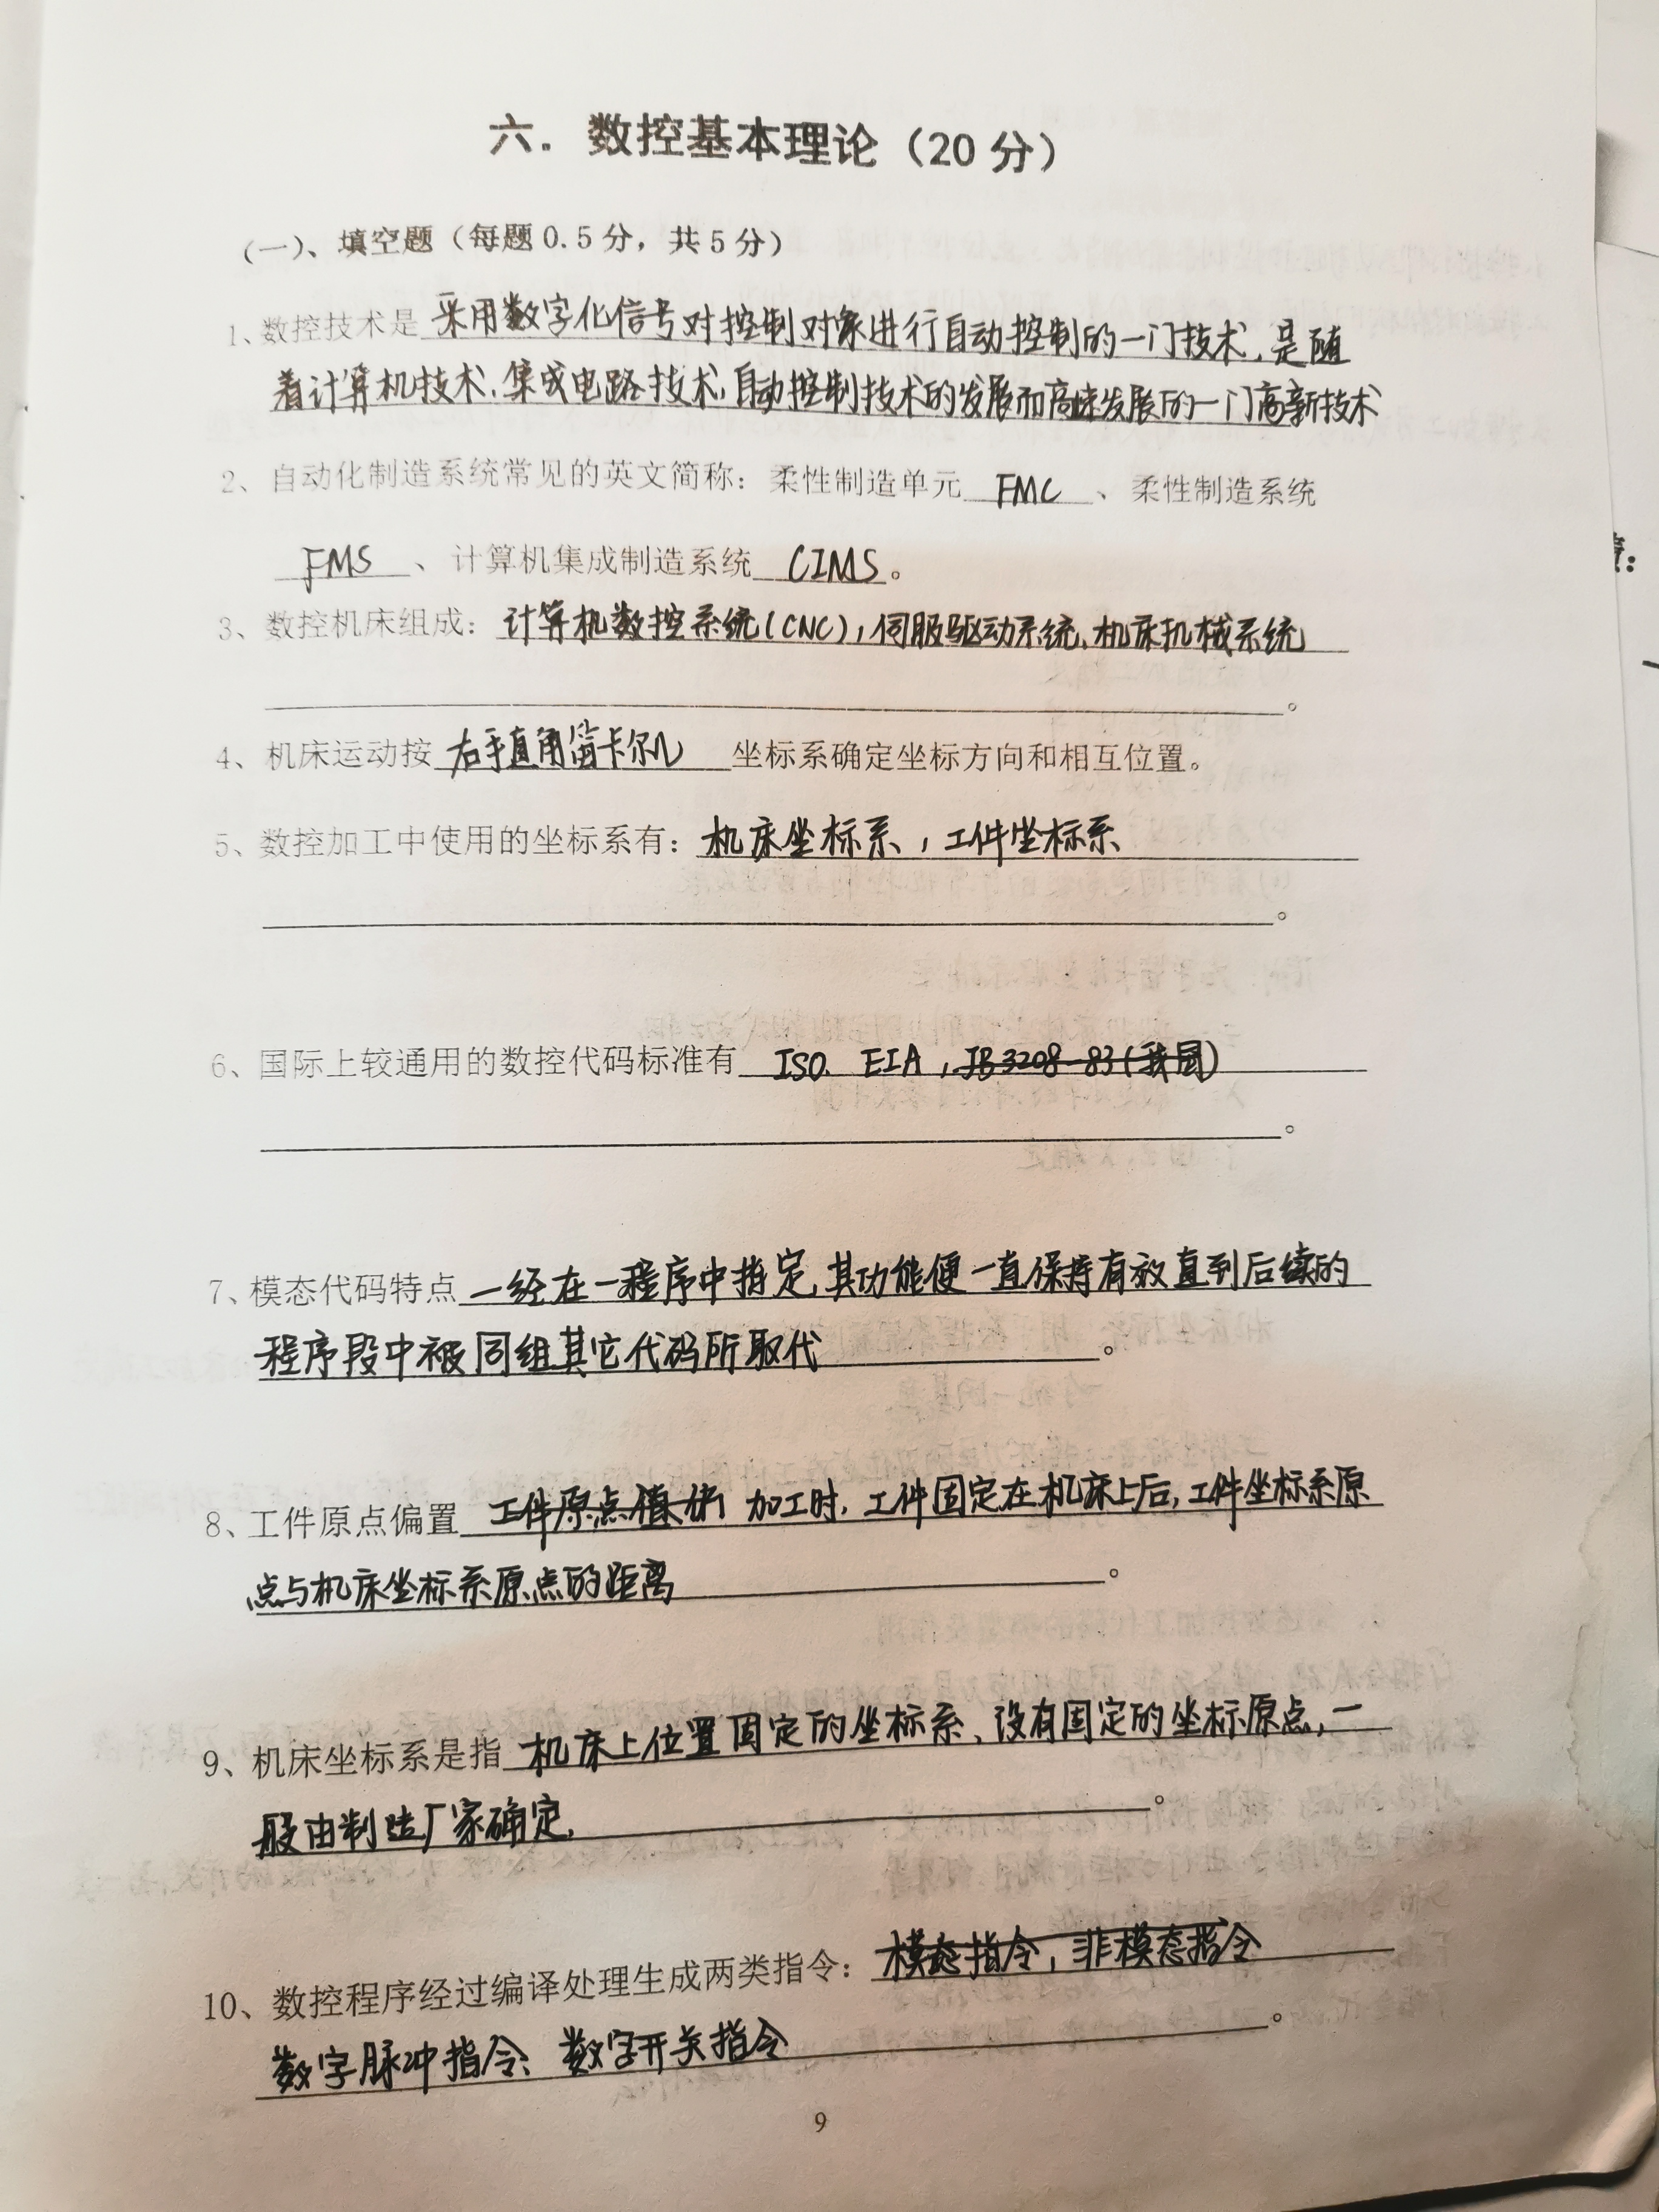 六. 数控基本理论（20 分）
（一）、填空题（每题 0.5 分，共 5 分）
1、数控技术是 采用数字化信号对控制对象进行自动控制的一门技术，是随
着计算机技术、集成电路技术，自动控制技术的发展而高速发展的一门高新技术
2、自动化制造系统常见的英文简称：柔性制造单元 FMC 、柔性制造系统
FMS 、计算机集成制造系统 CIMS 。
3、数控机床组成：计算机数控系统（CNC），伺服驱动系统，机床机械系统
。
4、机床运动按 右手直角笛卡尔儿 坐标系确定坐标方向和相互位置。
5、数控加工中使用的坐标系有：机床坐标系，工件坐标系
。
6、国际上较通用的数控代码标准有 ISO. EIA，JB3208-83（我国）
。
7、模态代码特点 一经在一程序中指定，其功能便一直保持有效直到后续的
程序段中被同组其它代码所取代 。
8、工件原点偏置 工件原点值 加工时，工件固定在机床上后，工件坐标系原
点与机床坐标系原点的距离 。
9、机床坐标系是指 机床上位置固定的坐标系、设有固定的坐标原点，一
般由制造厂家确定. 。
10、数控程序经过编译处理生成两类指令：模态指令，非模态指令
数字脉冲指令、数字开关指令 。
9